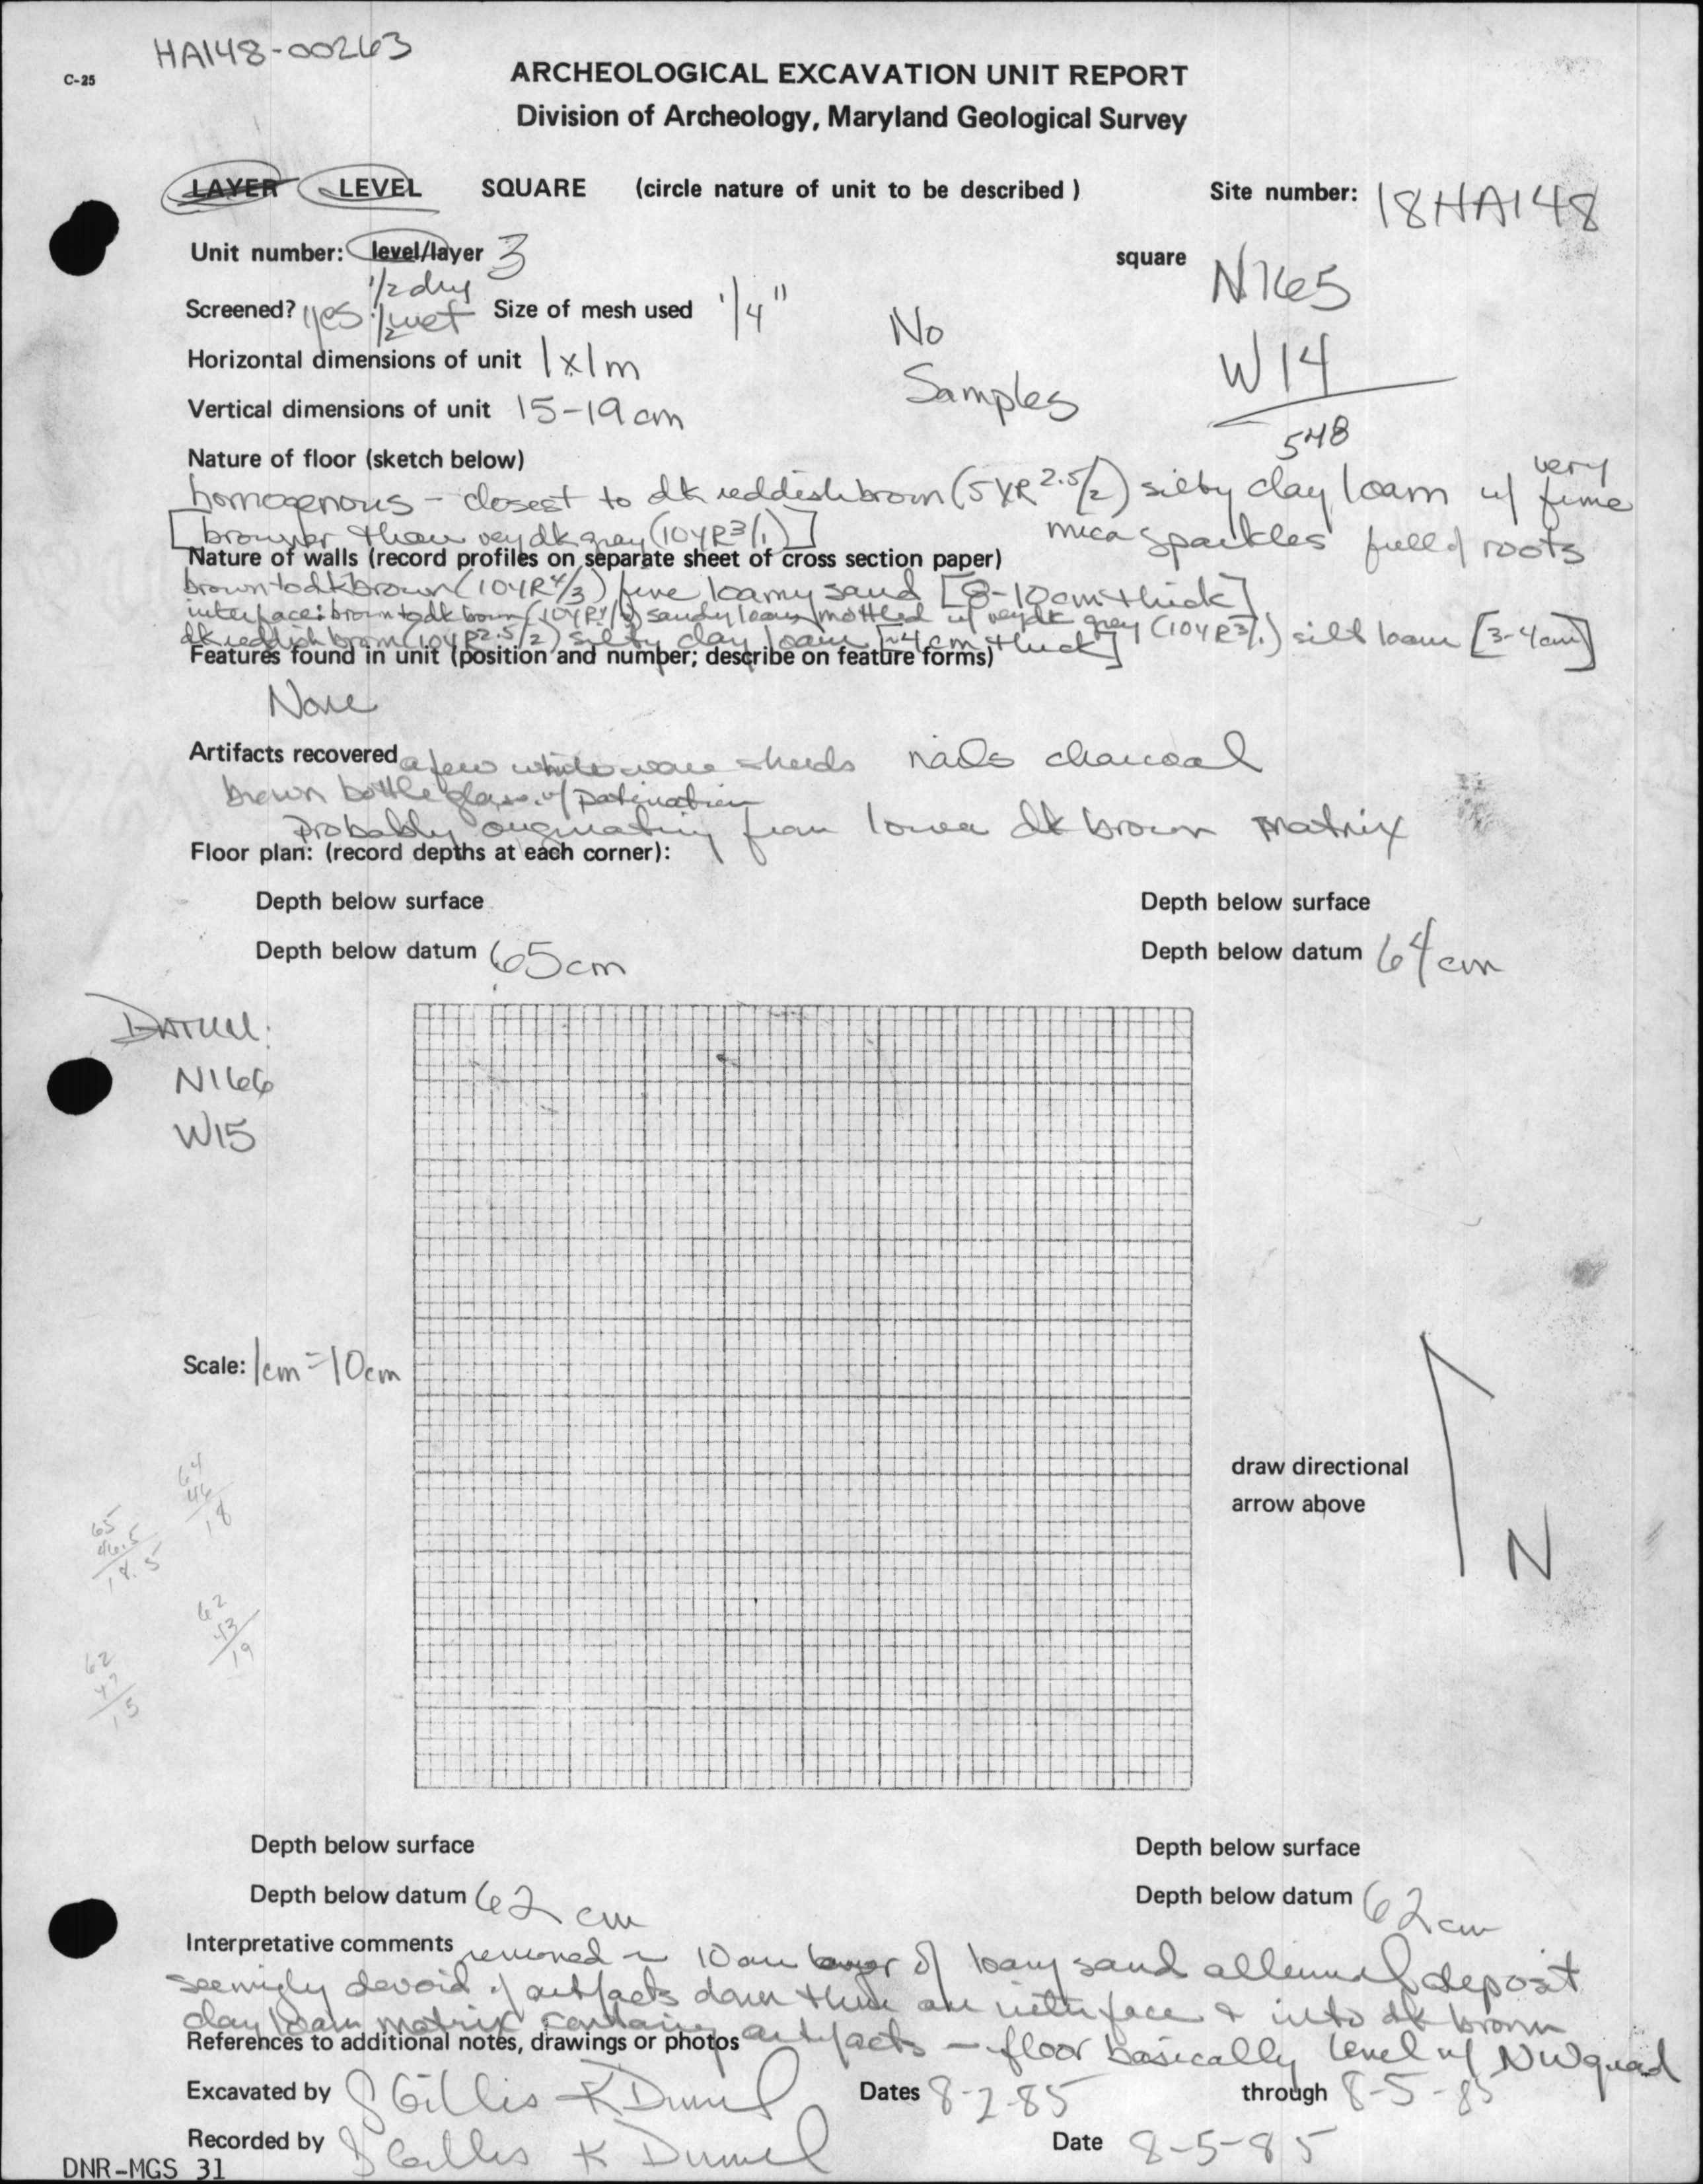 HA148-00263
C-25
ARCHEOLOGICAL EXCAVATION UNIT REPORT
Division of Archeology, Maryland Geological Survey
LAYER LEVEL SQUARE (circle nature of unit to be described ) Site number: 18HA148
Unit number: level/layer 3 square N165
Screened? yes 1/2 dry 1/2 wet Size of mesh used 1/4" No
Horizontal dimensions of unit 1x1m Samples W14
Vertical dimensions of unit 15-19cm 548
Nature of floor (sketch below)
homogenous - closest to dk reddish brown (5YR 2.5/2) silty clay loam w/ very fine
[browner than very dk gray (10YR 3/1)] mica sparkles full of roots
Nature of walls (record profiles on separate sheet of cross section paper)
brown to dk brown (10YR 4/3) fine loamy sand [8-10cm thick]
interface: brown to dk brown (10YR 4/3) sandy loam mottled w/ very dk grey (10YR 3/1) silt loam [3-4cm]
dk reddish brown (10YR 2.5/2) silty clay loam [~4cm thick]
Features found in unit (position and number; describe on feature forms)
None
Artifacts recovered a few whiteware sherds nails charcoal
brown bottle glass w/ patination
probably originating from lower dk brown matrix
Floor plan: (record depths at each corner):
Depth below surface Depth below surface
Depth below datum 65cm Depth below datum 64cm
DATUM:
N166
W15
Scale: 1cm = 10cm
64
46
18
65
46.5
18.5
draw directional
arrow above
N
62
43
19
62
47
15
Depth below surface Depth below surface
Depth below datum 62 cm Depth below datum 62cm
Interpretative comments removed ~ 10cm layer of loamy sand alluvial deposit
seemingly devoid of artifacts down thru an interface & into dk brown
clay loam matrix containing artifacts - floor basically level w/ NW quad
References to additional notes, drawings or photos
Excavated by J Gillis K Dunnel Dates 8-2-85 through 8-5-85
Recorded by J Gillis K Dunnel Date 8-5-85
DNR-MGS 31